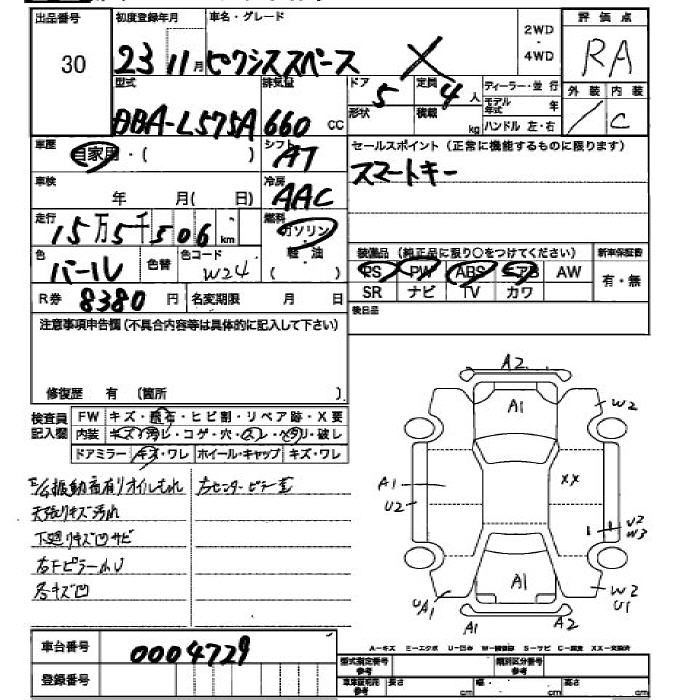 出品番号 初度登録年月 車名・グレード 2WD ・ 4WD 評価点
30 23 11月 ピクシススペース X RA
型式 排気量 ドア 定員 ディーラー・並行 外装 内装
DBA-L575A 660 cc 5 4人 モデル年式 年 / C
形状 積載 kg ハンドル 左・右
車歴 自家用・( ) シフト AT セールスポイント(正常に機能するものに限ります)
車検 年 月( 日) 冷房 AAC スマートキー
走行 15万5千506km 燃料 ガソリン・軽油
色 パール 色替 色コード W24 装備品(純正品に限り○をつけてください) 新車保証書
PS PW ABS エアB AW 有・無
R券 8380円 名変期限 月 日 SR ナビ TV カワ
注意事項申告欄(不具合内容等は具体的に記入して下さい) 後日品
修復歴 有 (箇所 )
検査員記入欄 FW キズ・飛石・ヒビ割・リペア跡・X要
内装 キズ・汚レ・コゲ・穴・スレ・ヘタリ・破レ
ドアミラー キズ・ワレ ホイール・キャップ キズ・ワレ
E/G振動音有りオイルもれ 右センターピラー歪
天張りキズ汚れ
下廻りキズ凹サビ
右FピラールU
各キズ凹
A2
A1 W2
A1 XX
U2
U2
W3
A1 W2
UA1 U1
A1 A2
車台番号 0004729
登録番号
A-キズ E-エクボ U-凹み W-補修跡 S-サビ C-腐食 XX-交換済
型式指定番号 参考 類別区分番号 参考
車車証明用 参考 長さ cm 幅 cm 高さ cm